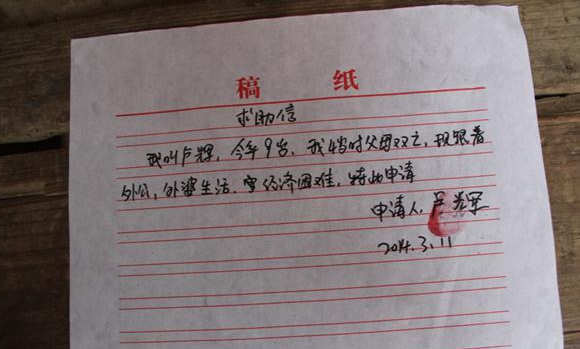 稿 纸
求助信
我叫卢辉,今年9岁,我4岁时父母双亡,现跟着
外公,外婆生活,家经济困难,特此申请
申请人,卢辉
2014.3.11